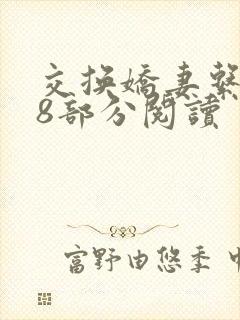 交換嬌妻繫
8部分閱讀
富野由悠季 中